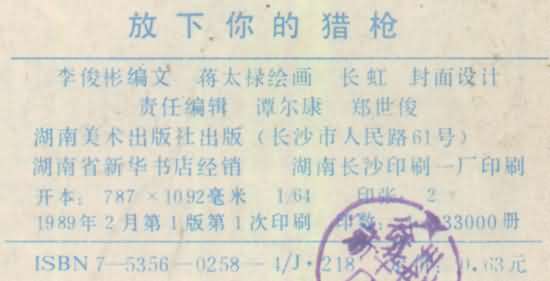 放下你的猎枪
李俊彬编文 蒋太禄绘画 长虹 封面设计
责任编辑 谭尔康 郑世俊
湖南美术出版社出版（长沙市人民路61号）
湖南省新华书店经销 湖南长沙印刷一厂印刷
开本：787×1092毫米 1/64 印张 2
1989年2月第1版第1次印刷 印数： 33000册
ISBN 7—5356—0258—4/J·218 0.63元